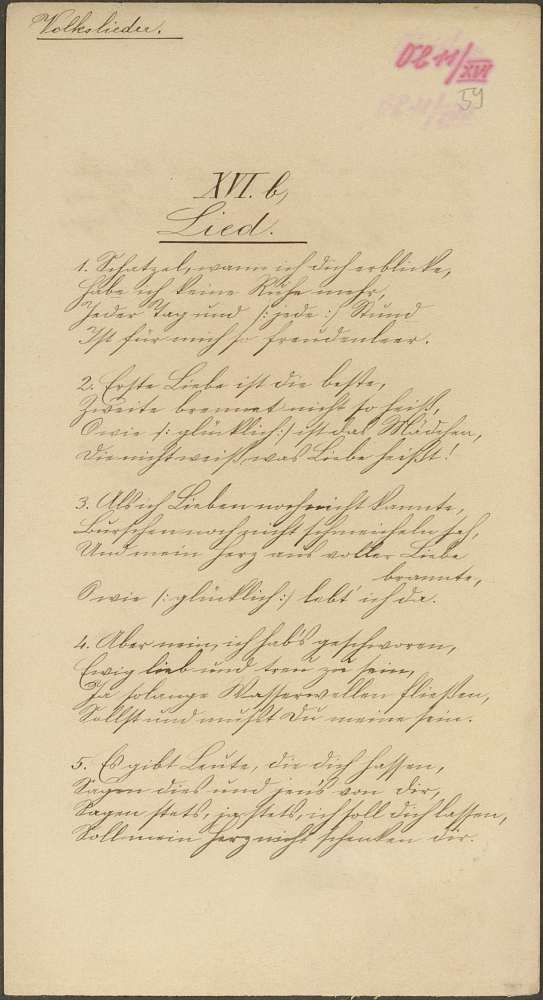 Volkslieder.
OL 11/XVI
59
XVI. b,
Lied.
1. Schatzel, wann ich dich erblicke,
Habe ich keine Ruhe mehr,
Jeder Tag und /: jede :/ Stund
Ist für mich so freudenleer.
2. Erste Liebe ist die beste,
Zweite brennet nicht so heiß,
O wie /: glücklich :/ ist das Mädchen,
Die nicht weiß was Liebe heißt!
3. Als ich Lieben noch nicht kannte,
Burschen noch nicht schmeicheln sah,
Und mein Herz aus voller Liebe
brannte,
O wie /: glücklich :/ lebt' ich da.
4. Aber nein, ich hab's geschworen,
Ewig lieb und treu zu sein,
Ja solange Wasserwellen fließen,
Sollst und mußt Du meine sein.
5. Es gibt Leute, die dich hassen,
Sagen dies und jen's von dir,
Sagen stets, ja stets, ich soll dich lassen,
Soll mein Herz nicht schenken dir.